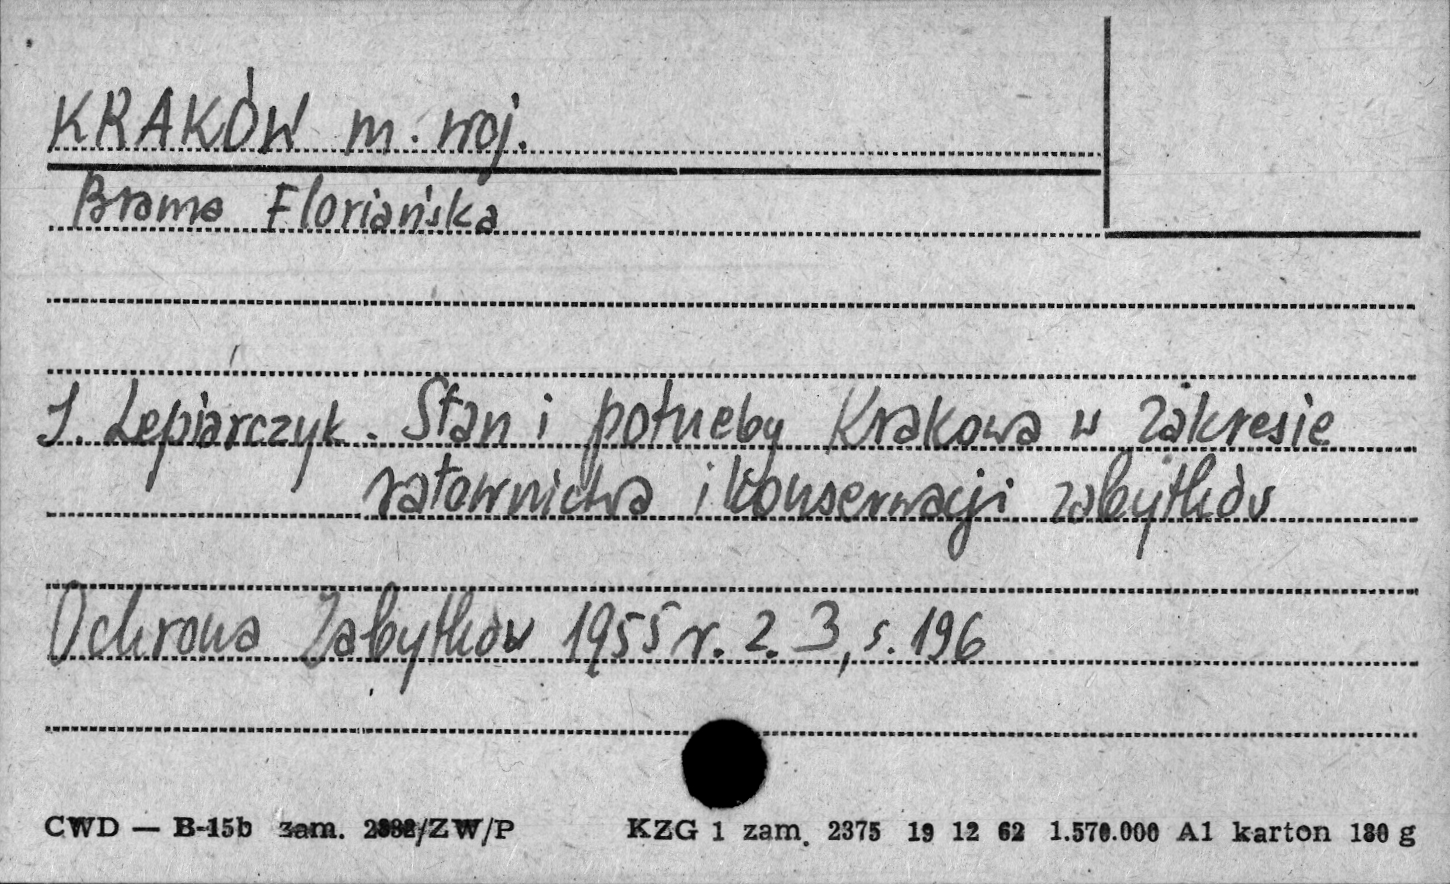 KRAKÓW m. woj.
Brama Floriańska
J. Lepiarczyk. Stan i potrzeby Krakowa w zakresie
ratownictwa i konserwacji zabytków
Ochrona Zabytków 1955 r. z. 3, s. 196
CWD — B-15b zam. /ZW/P KZG 1 zam. 2375 19 12 62 1.570.000 A1 karton 180 g